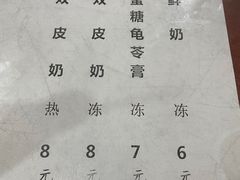 双皮奶热8元
双皮奶冻8元
蜜糖龟苓膏冻7元
奶冻6元